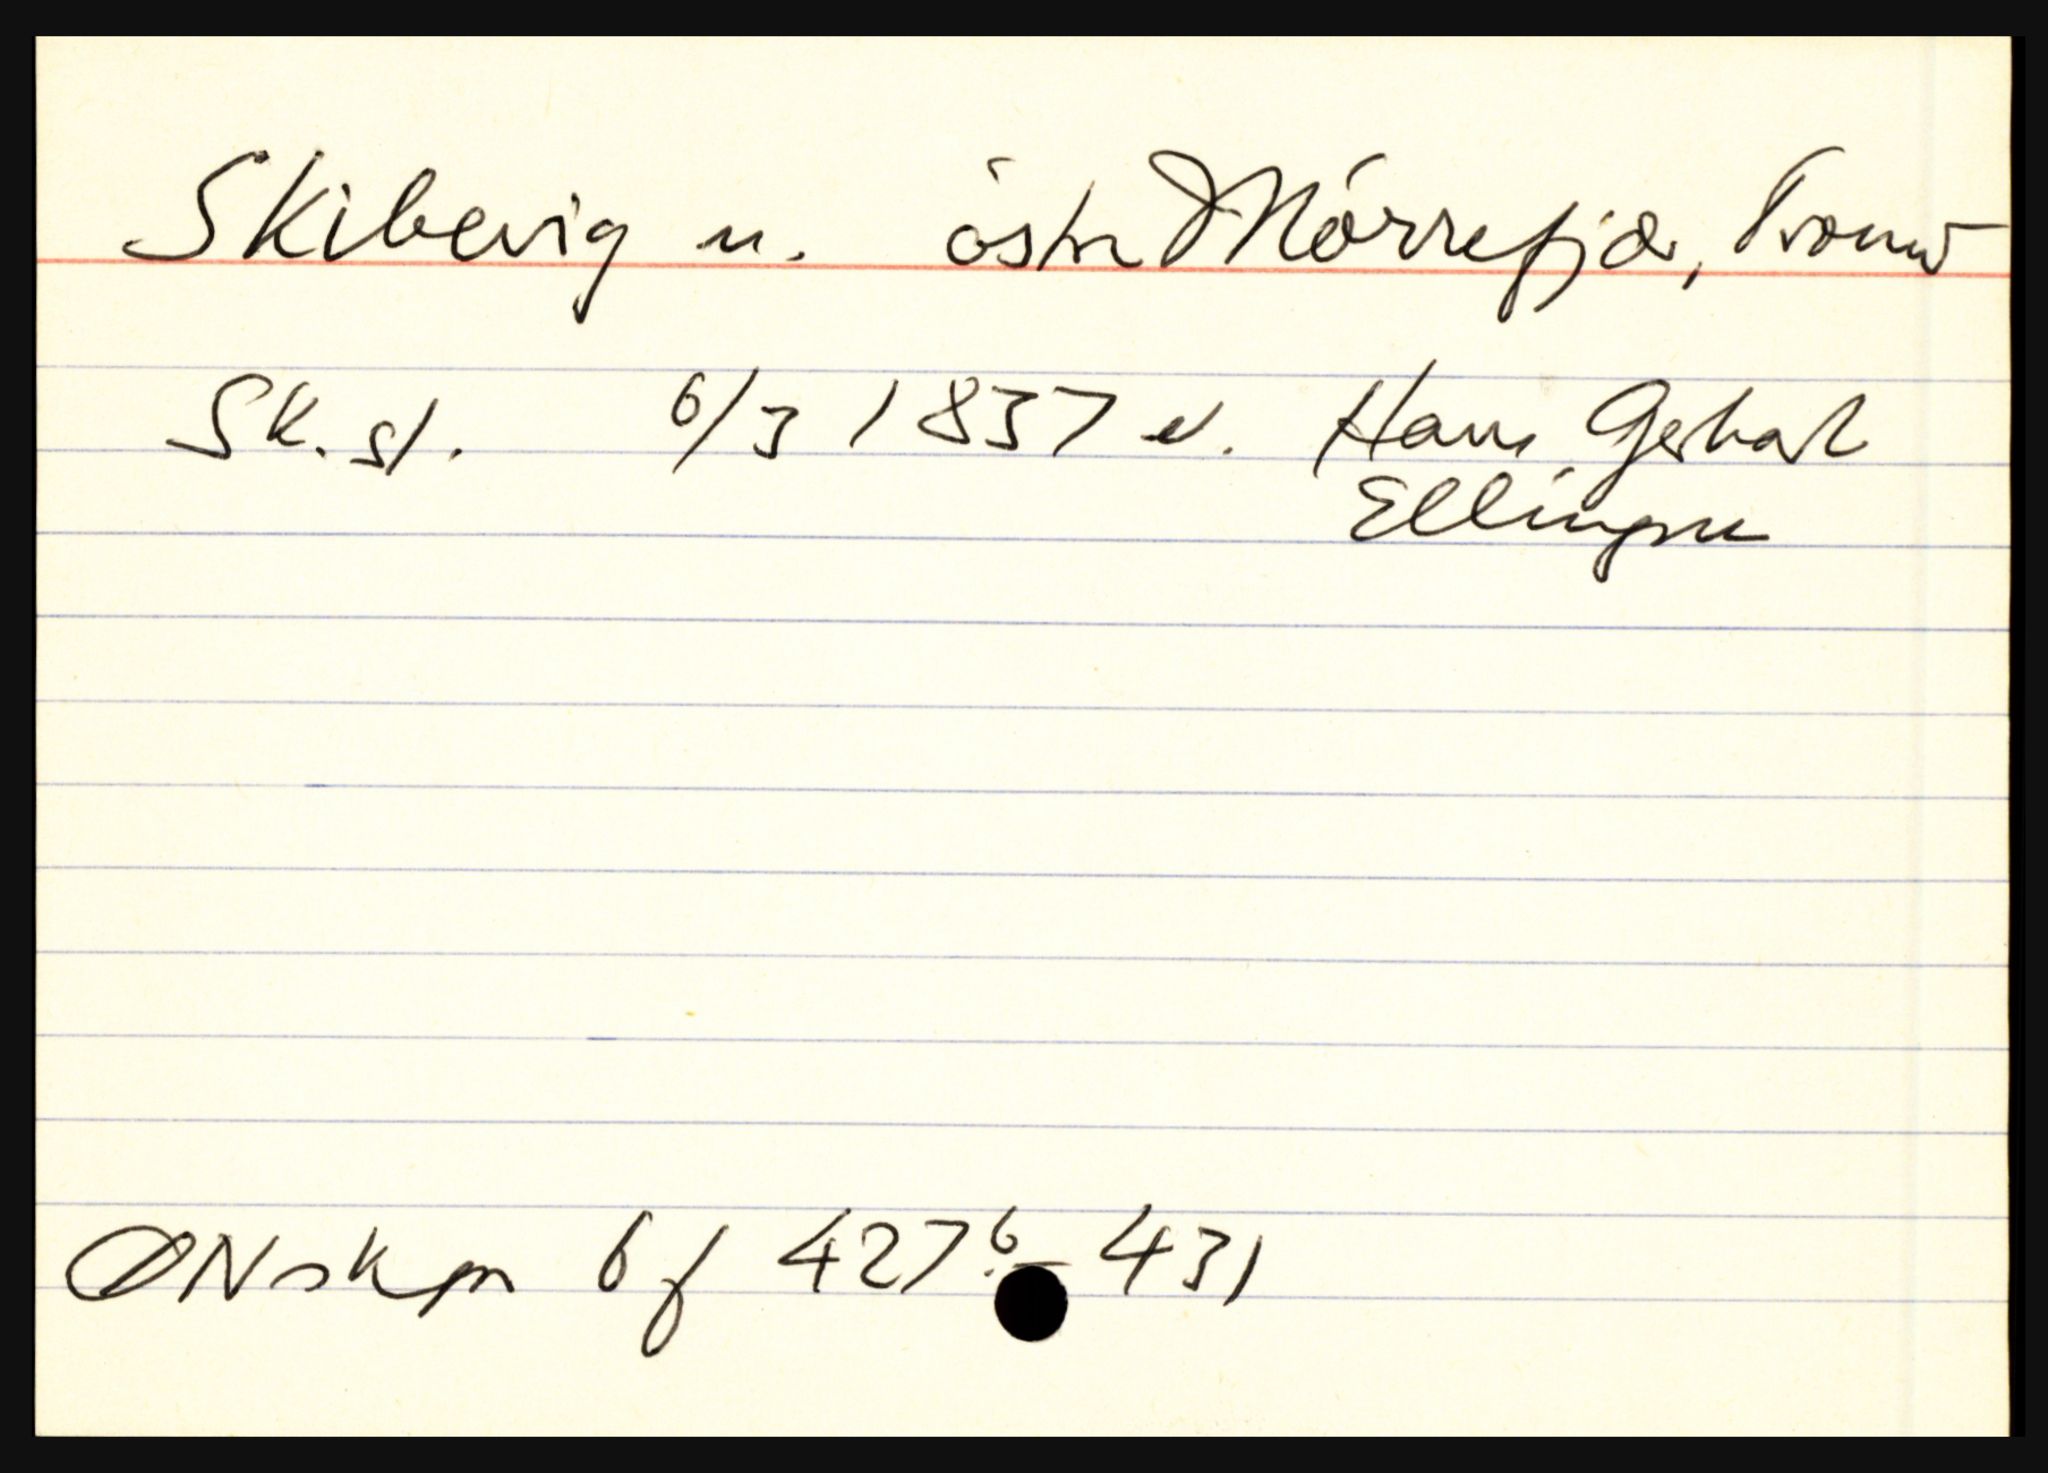 Skibevig u. östre Mörrefjær, Tromø
Sk.st. 6/3 1837 v. Hans Gerhard
Ellingsen
ØNskpr 6 f 427 b - 431